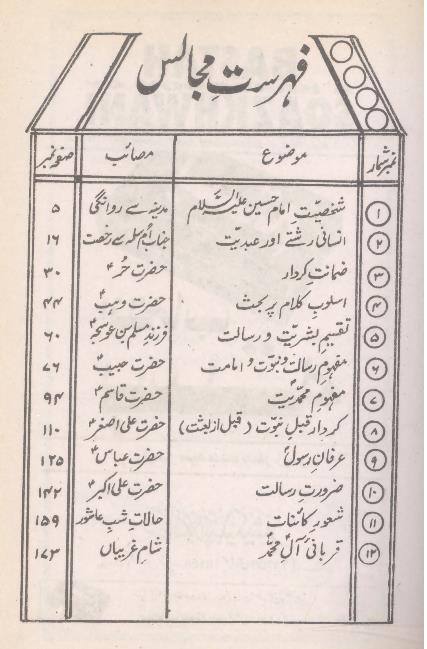 فہرستِ مجالس
نمبر شمار موضوع مصائب صفحہ نمبر
۱ شخصیّتِ امام حسین علیہ السلام مدینہ سے روانگی ۵
۲ انسانی رشتے اور عبدیت جناب اُم سلمہ سے رخصت ۱۶
۳ ضمانتِ کردار حضرت حُرؑ ۳۰
۴ اسلوبِ کلام پر بحث حضرت وہبؑ ۴۴
۵ تقسیمِ بشریّت و رسالت فرزندِ مسلم بن عوسجہؑ ۶۰
۶ مفہومِ رسالت و نبوّت و امامت حضرت حبیبؑ ۷۶
۷ مفہومِ محمدیّت حضرت قاسمؑ ۹۴
۸ کردار قبلِ نبوّت (قبل از بعثت) حضرت علی اصغرؑ ۱۱۰
۹ عرفانِ رسولؐ حضرت عباسؑ ۱۲۵
۱۰ ضرورتِ رسالت حضرت علی اکبرؑ ۱۴۲
۱۱ شعورِ کائنات حالاتِ شبِ عاشور ۱۵۹
۱۲ قربانیٔ آلِ محمدؐ شامِ غریباں ۱۷۳